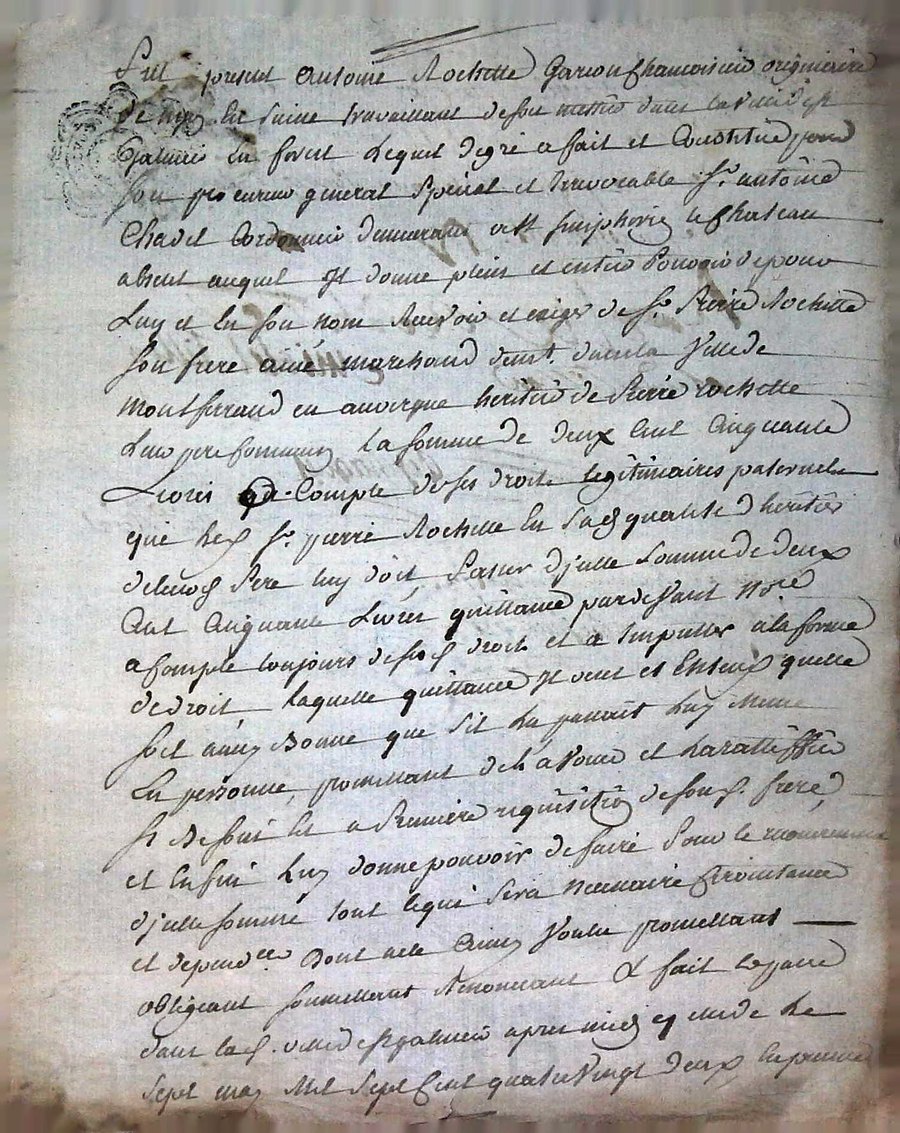 fut present antoine Rochette Garcon Chamoisieu originaire
de en travaillant de son metier dans la ville de st
Galmier en forest Lequel de gré a fait et Constitué pour
son procureur general special et Irrevocable Sr. antoine
Chavet Cordonnier demeurant a st simphorien le Chateau
absent auquel Il donne plein et entier Pouvoir de pour
Luy et En son nom Recevoir et exiger de Sr. Pierre Rochette
son frere ainé marchand demt. dans la Ville de
montferrand en auvergne heritier de Pierre rochette
Leur pere commun La somme de deux Cent Cinquante
Livres a Compte de ses droits legitimaires paternels
que led Sr. pierre Rochette En sad qualité d'heritier
de leurd Pere luy doit, Passer d'icelle somme de deux
Cent Cinquante Livres quittance pardevant Nore
a Compte toujours de sesd droits et a Imputer a la forme
de droit Laquelle quittance Il veut et Entend quelle
soit aussy Bonne que sil La passait Luy meme
En personne, promettant de L'avouer et La ratiffier
si Besoin est a Premiere requisition de sond. frere,
et Enfin Luy donne pouvoir de faire Pour le recouvrement
d'icelle somme tout ce qui sera necessaire Circonstance
et dependces Dont acte Ainsy Voulu promettant
obligeant soumettant Renonceant & fait et passé
dans lad. ville de st galmier apres midy en etude Le
sept may Mil Sept Cent quatre Vingt deux En presence